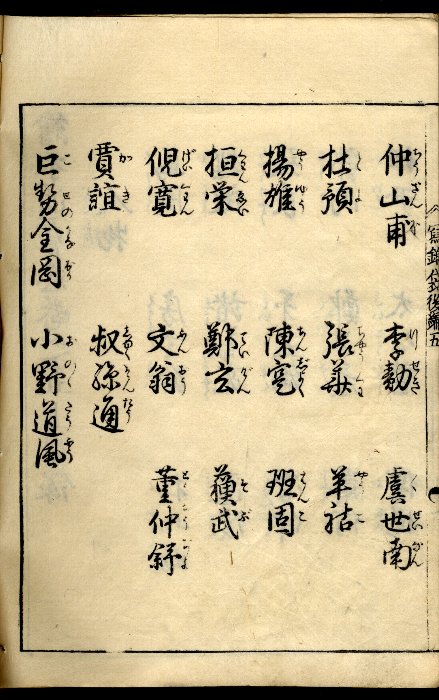 仲山甫 李勣 虞世南
杜預 張華 羊祜
揚雄 陳寔 班固
桓栄 鄭玄 蘇武
倪寛 文翁 董仲舒
賈誼 叔孫通
巨勢金岡 小野道風